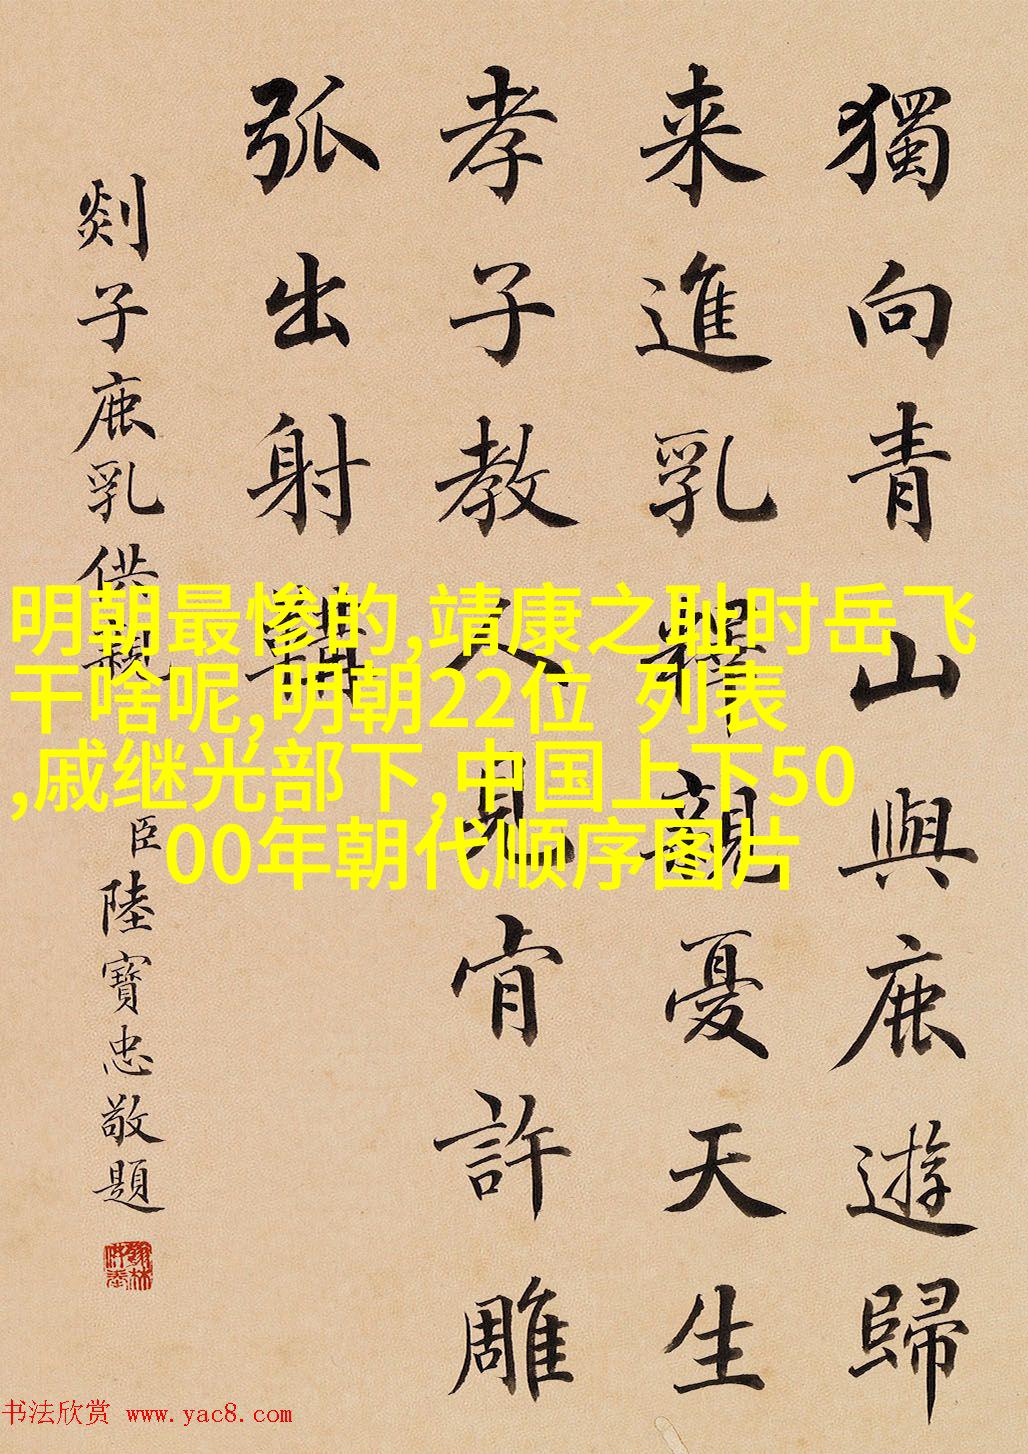 獨向青山與鹿遊歸
来進乳釋親憂天生
孝子教人見肯許雕
弧出射韝
剡子鹿乳供親
臣陸寶忠敬題
翰林供奉
明朝最惨的,靖康之耻时岳飞
干啥呢,明朝22位 列表
,戚继光部下,中国上下50
00年朝代顺序图片
书法欣赏 www.yac8.com